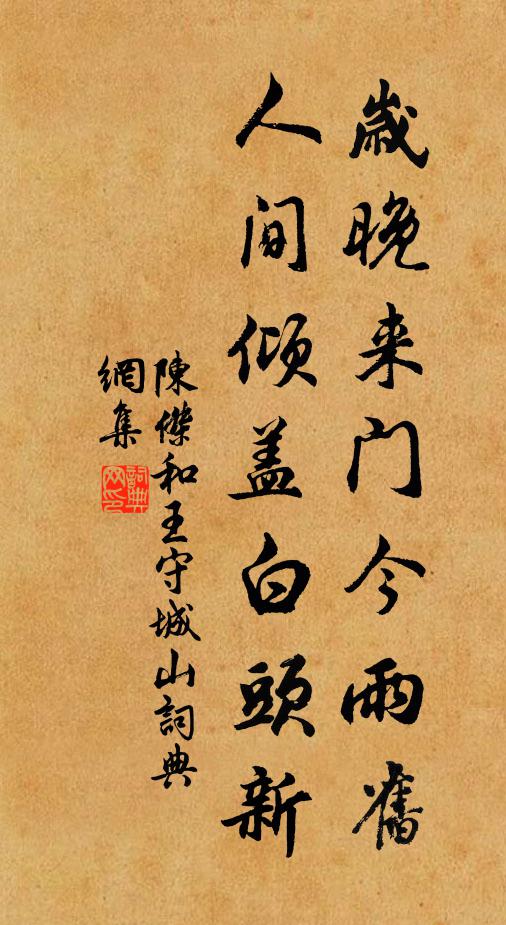 歲晚来门今雨舊
人间傾盖白頭新
陳傑和王守城山詞典
網集
詞典网印